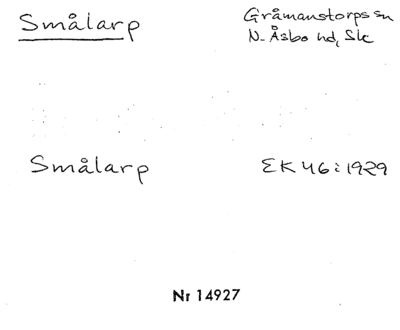 Smålarp
Gråmanstorps sn
N. Åsbo hd, Sk
Smålarp
EK 46:1929
Nr 14927